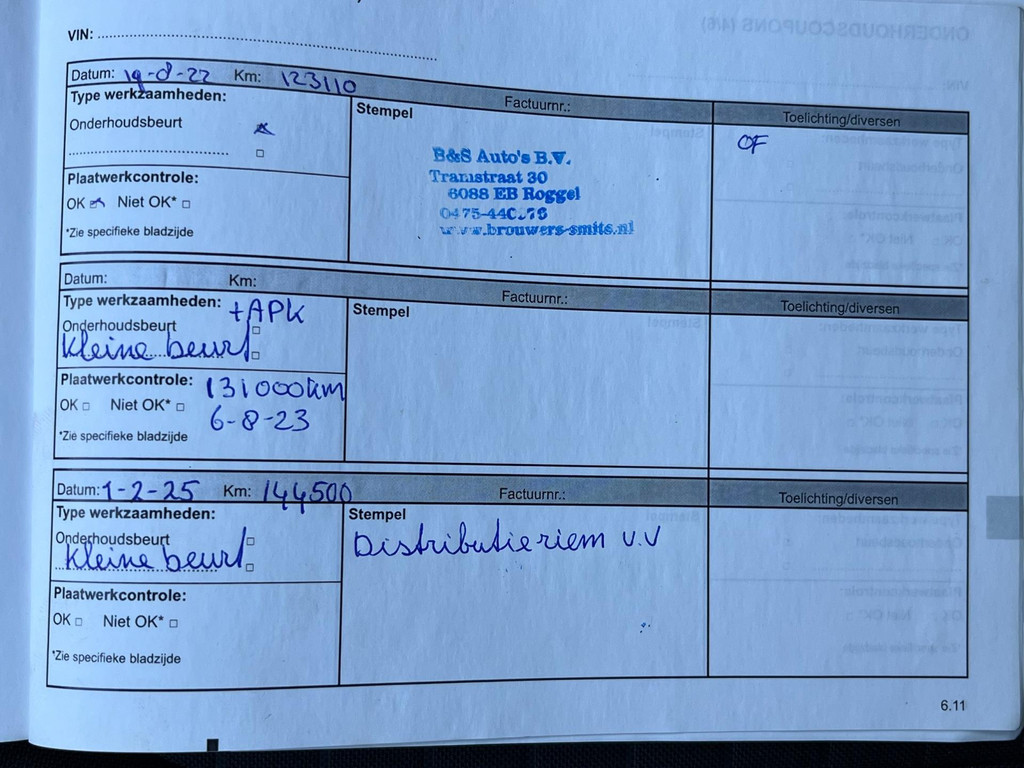 VIN:
Datum: 19-8-22 Km: 123110 Factuurnr.: Toelichting/diversen
Type werkzaamheden:
Stempel
Onderhoudsbeurt
OF
B&S Auto's B.V.
Tramstraat 30
6088 EB Roggel
www.brouwers-smits.nl
Plaatwerkcontrole:
OK Niet OK*
*Zie specifieke bladzijde
Datum: Km: Factuurnr.: Toelichting/diversen
Type werkzaamheden: +APK
Stempel
Onderhoudsbeurt
Kleine beurt
Plaatwerkcontrole: 131000km
OK Niet OK* 6-8-23
*Zie specifieke bladzijde
Datum: 1-2-25 Km: 144500 Factuurnr.: Toelichting/diversen
Type werkzaamheden:
Stempel
Onderhoudsbeurt
Kleine beurt
Distributieriem v.v
Plaatwerkcontrole:
OK Niet OK*
*Zie specifieke bladzijde
6.11